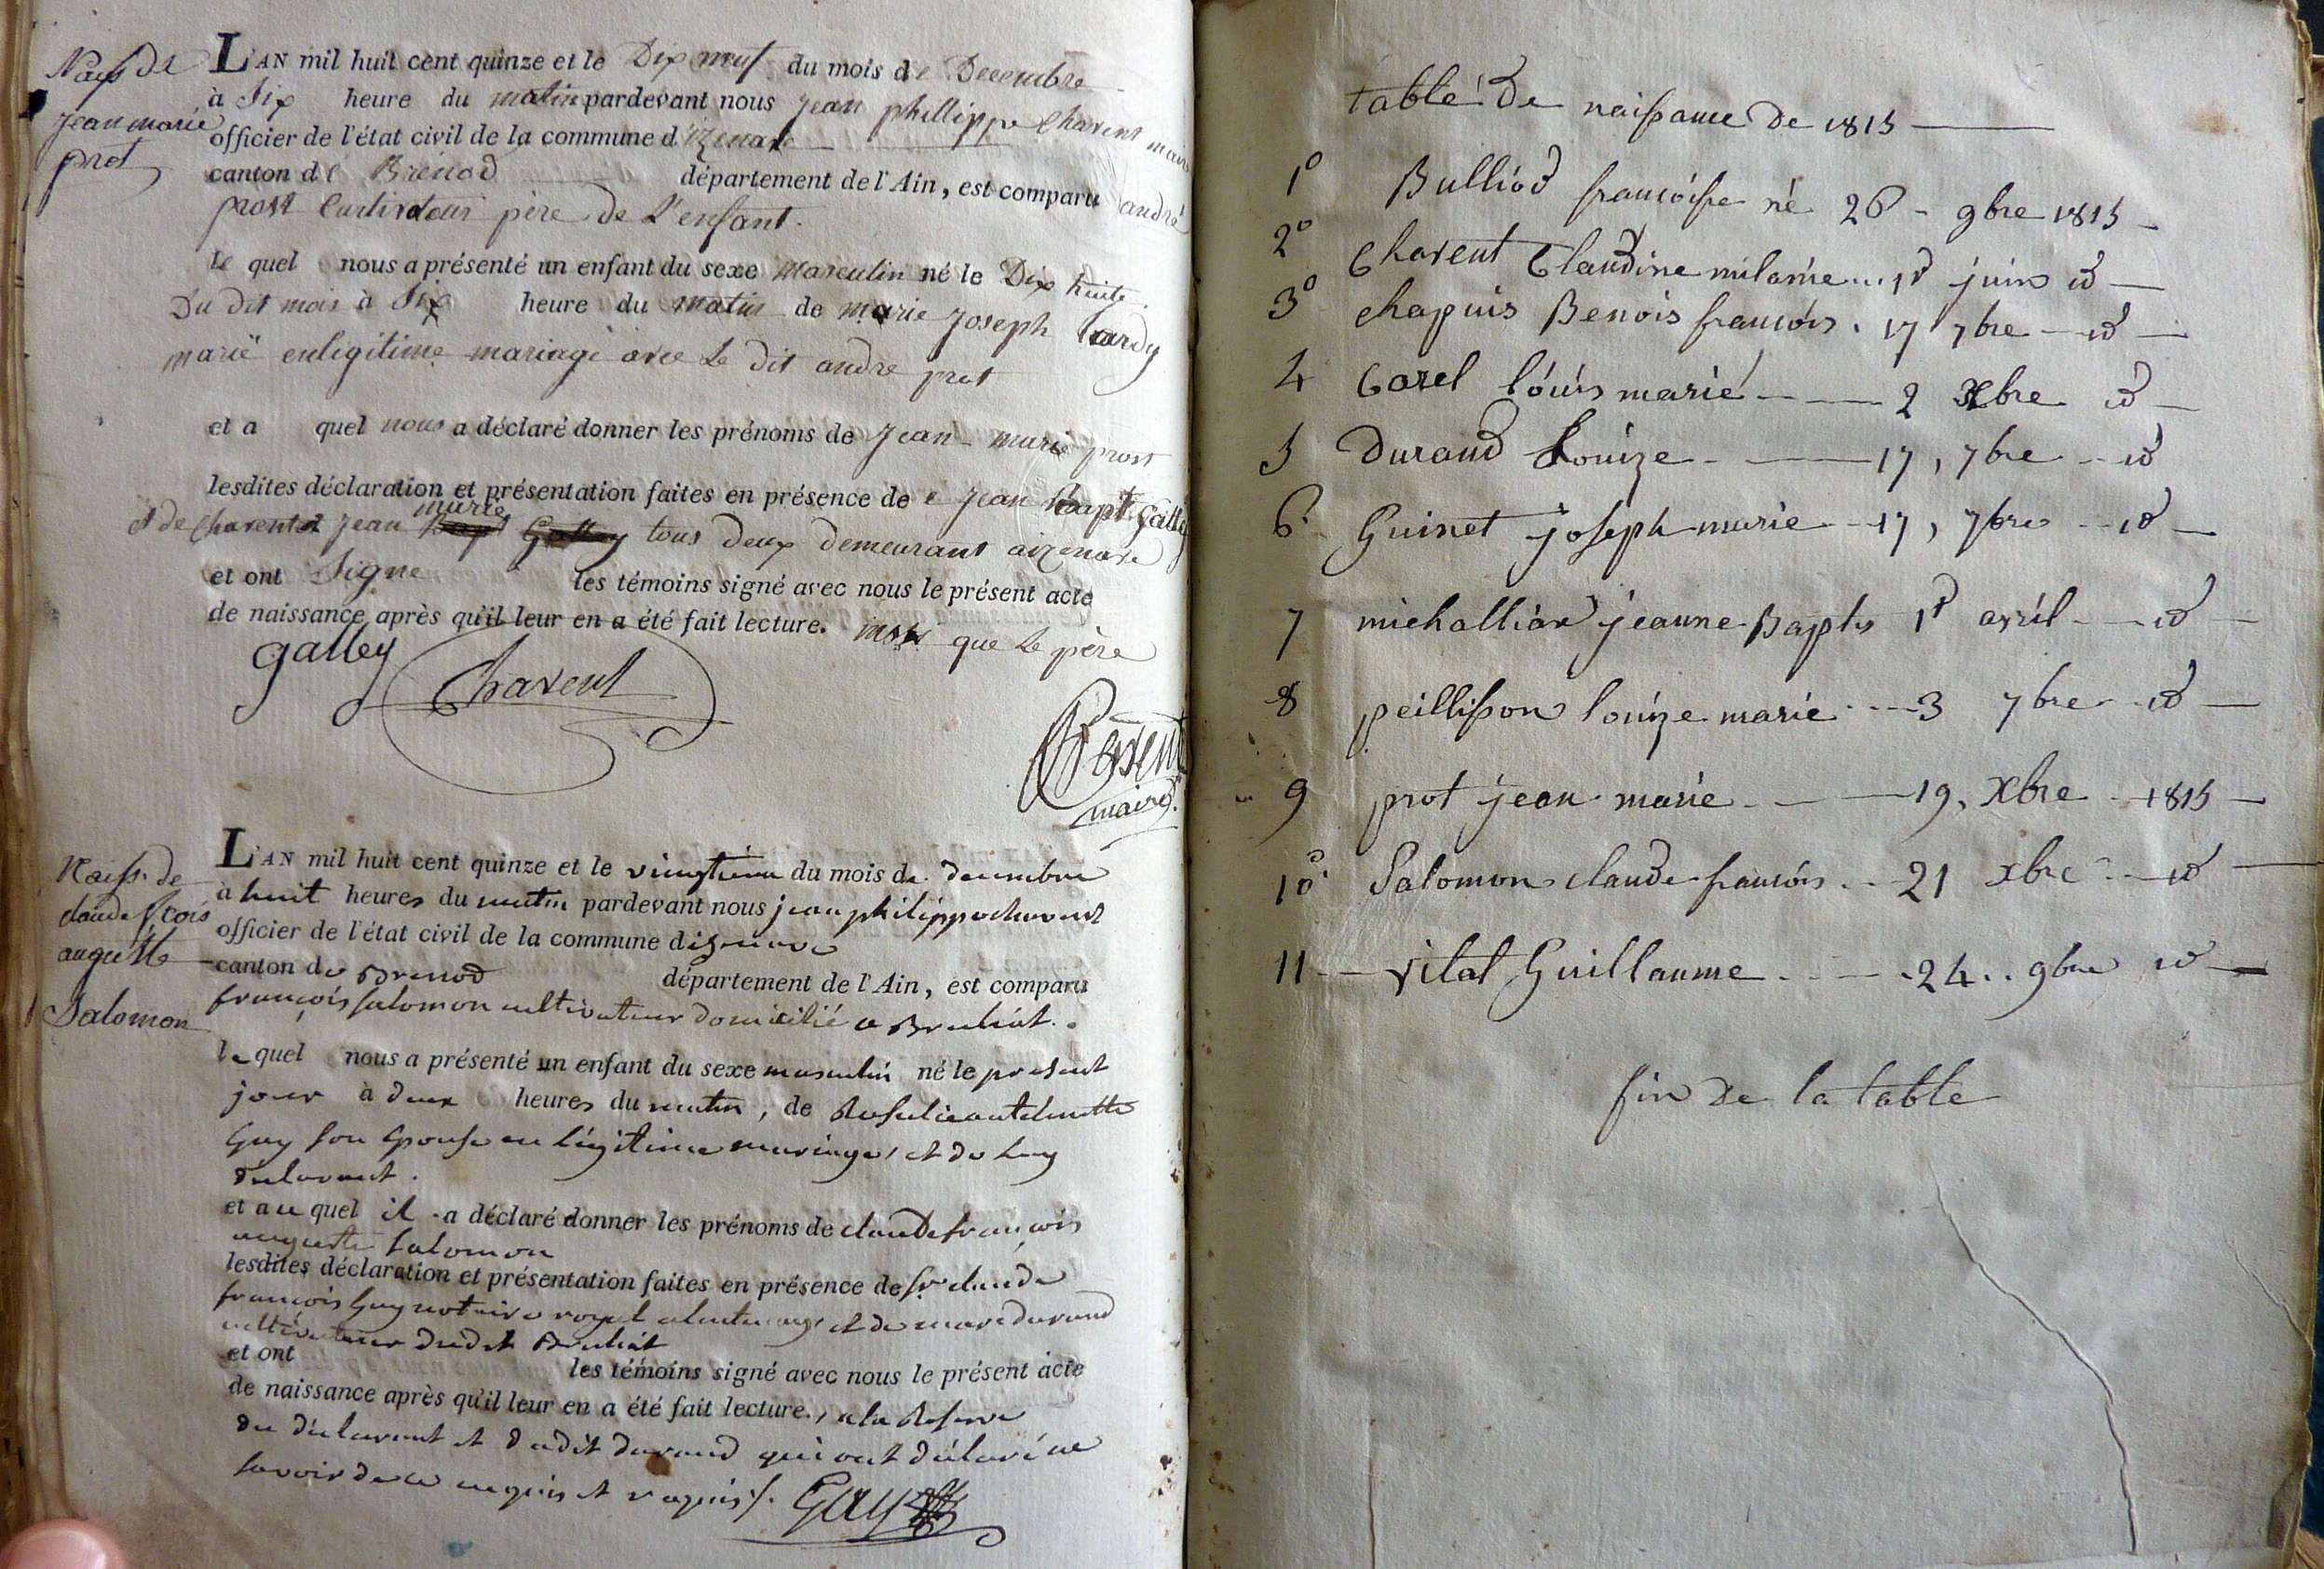 Naiss de
Jean marie
prot
L'AN mil huit cent quinze et le Dix neuf du mois de Decembre
à Six heure du matin pardevant nous jean phillippe Charent maire
officier de l'état civil de la commune d'izenave
canton de Brénod département de l'Ain, est comparu andré
prost Cultivateur père de L'enfant.
le quel nous a présenté un enfant du sexe masculin né le Dix huite
Du dit mois à Six heure du matin de marie Joseph tardy
marié enligitime mariage avec Le dit andre prot
et a quel nous a déclaré donner les prénoms de Jean-marie prost
lesdites déclaration et présentation faites en présence de Jean Bapt Galley
et de Charent Jean marie tous deux demeurant aizenave
et ont Signe les témoins signé avec nous le présent acte
de naissance après qu'il leur en a été fait lecture. que Le père
galley
Charent
Charent
maire
Naiss. de
claude fcois
auguste
Salomon
L'AN mil huit cent quinze et le vingtieme du mois de decembre
à huit heures du matin pardevant nous jean philippe charent
officier de l'état civil de la commune dizenave
canton de Brenod département de l'Ain, est comparu
françois salomon cultivateur domicilié a Bruhiat.
le quel nous a présenté un enfant du sexe masculin né le present
jour à deux heures du matin, de Roselie antelmette
Guy son Epouse en légitime mariage, et de luy
declarant.
et au quel il a déclaré donner les prénoms de claude françois
auguste salomon
lesdites déclaration et présentation faites en présence de sr claude
françois Guy notaire royal et de marc durand
cultivateur dudit Bruhiat
et ont les témoins signé avec nous le présent acte
de naissance après qu'il leur en a été fait lecture., a la Reserve
du déclarant et dudit durand qui ont déclaré ne
savoir de ce enquis et requis /. Guy
table De naissance De 1815
1º Bulliod francoise né 26 - 9bre 1815
2º Charent Claudine milanie... 1r juin id
3º chapuis Benois francois. 17 7bre id
4 Corel louis marie 2 Xbre id
5 Durand Louize 17, 7bre id
6 Guinet joseph marie 17, 7bre id
7 michalliar jeanne Bapts 1r avril id
8 peillisson louize marie 3 7bre id
9 prot jean marie 19, Xbre 1815
10º Salomon claude francois 21 xbre id
11 vital Guillaume 24.. 9bre id
fin De la table